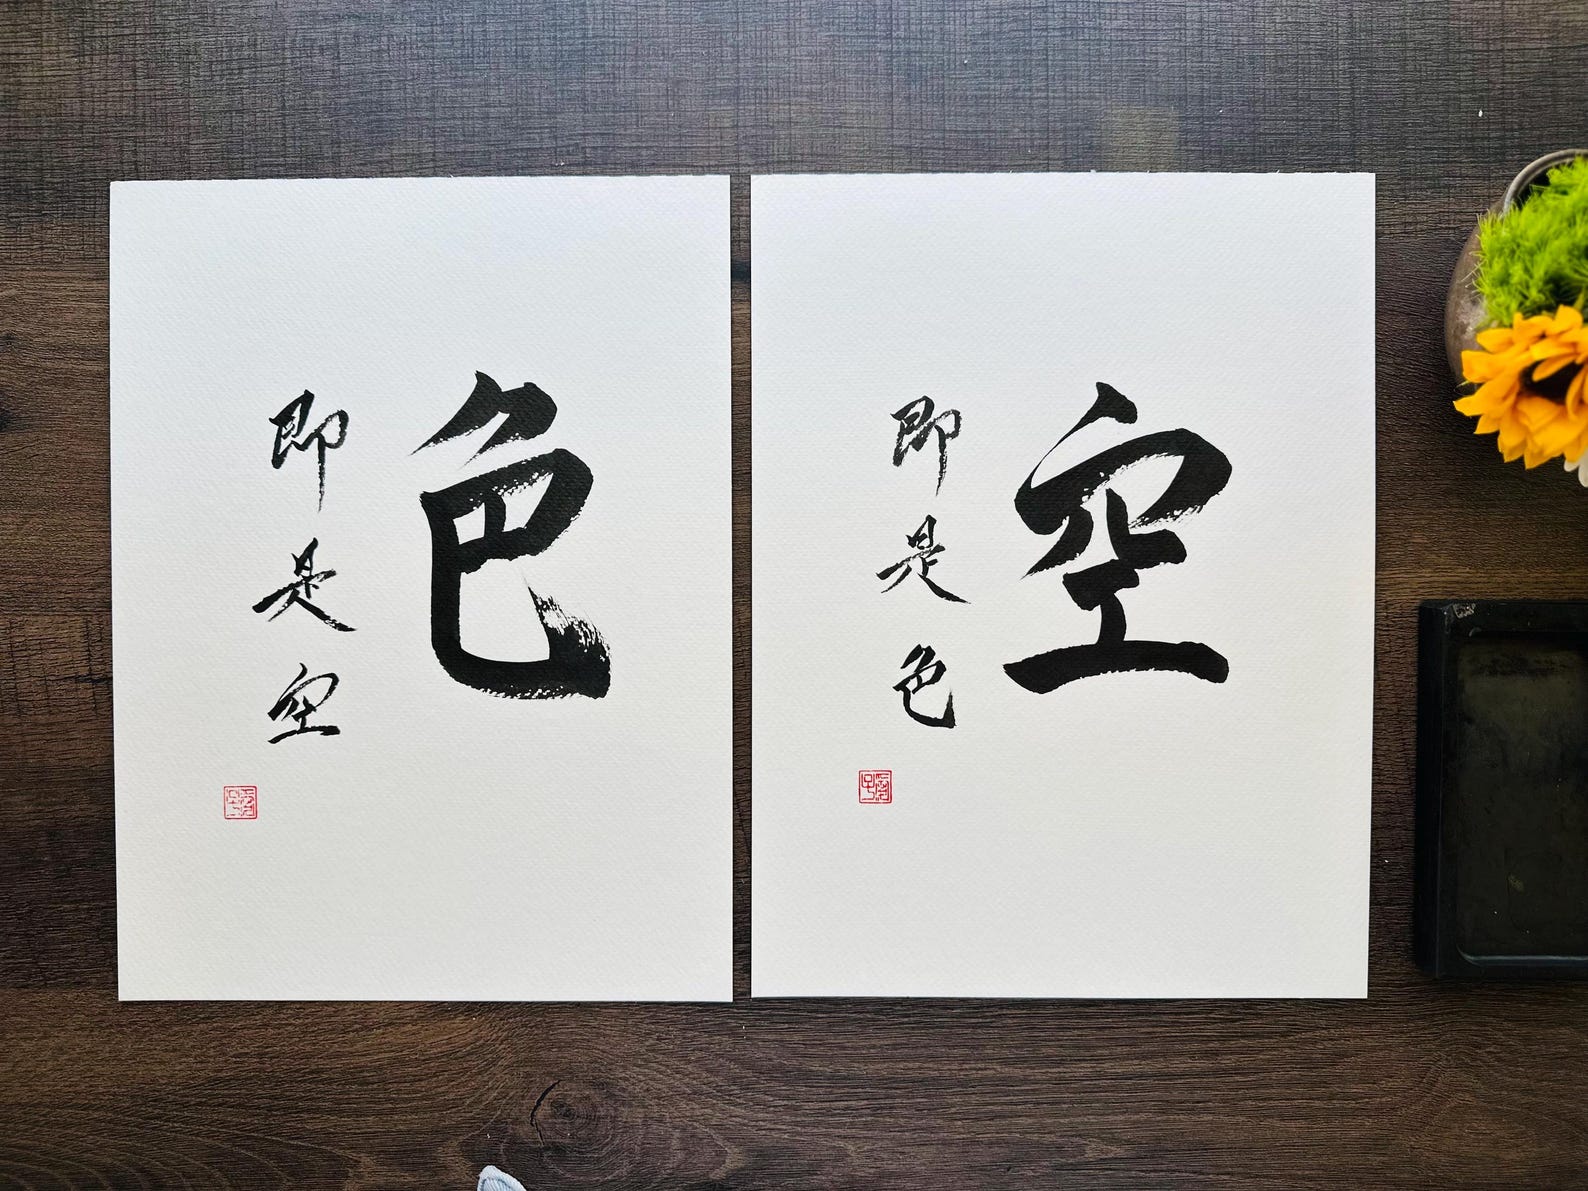 色
即是空
空
即是色